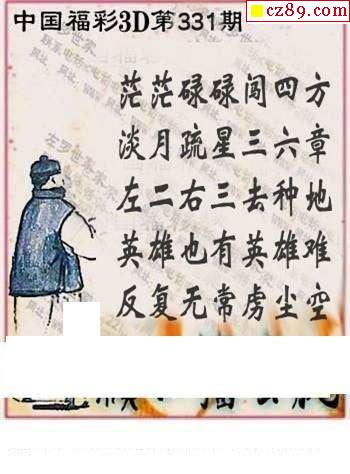 cz89.com
中国福彩3D第331期
茫茫碌碌闯四方
淡月疏星三六章
左二右三去种地
英雄也有英雄难
反复无常虏尘空